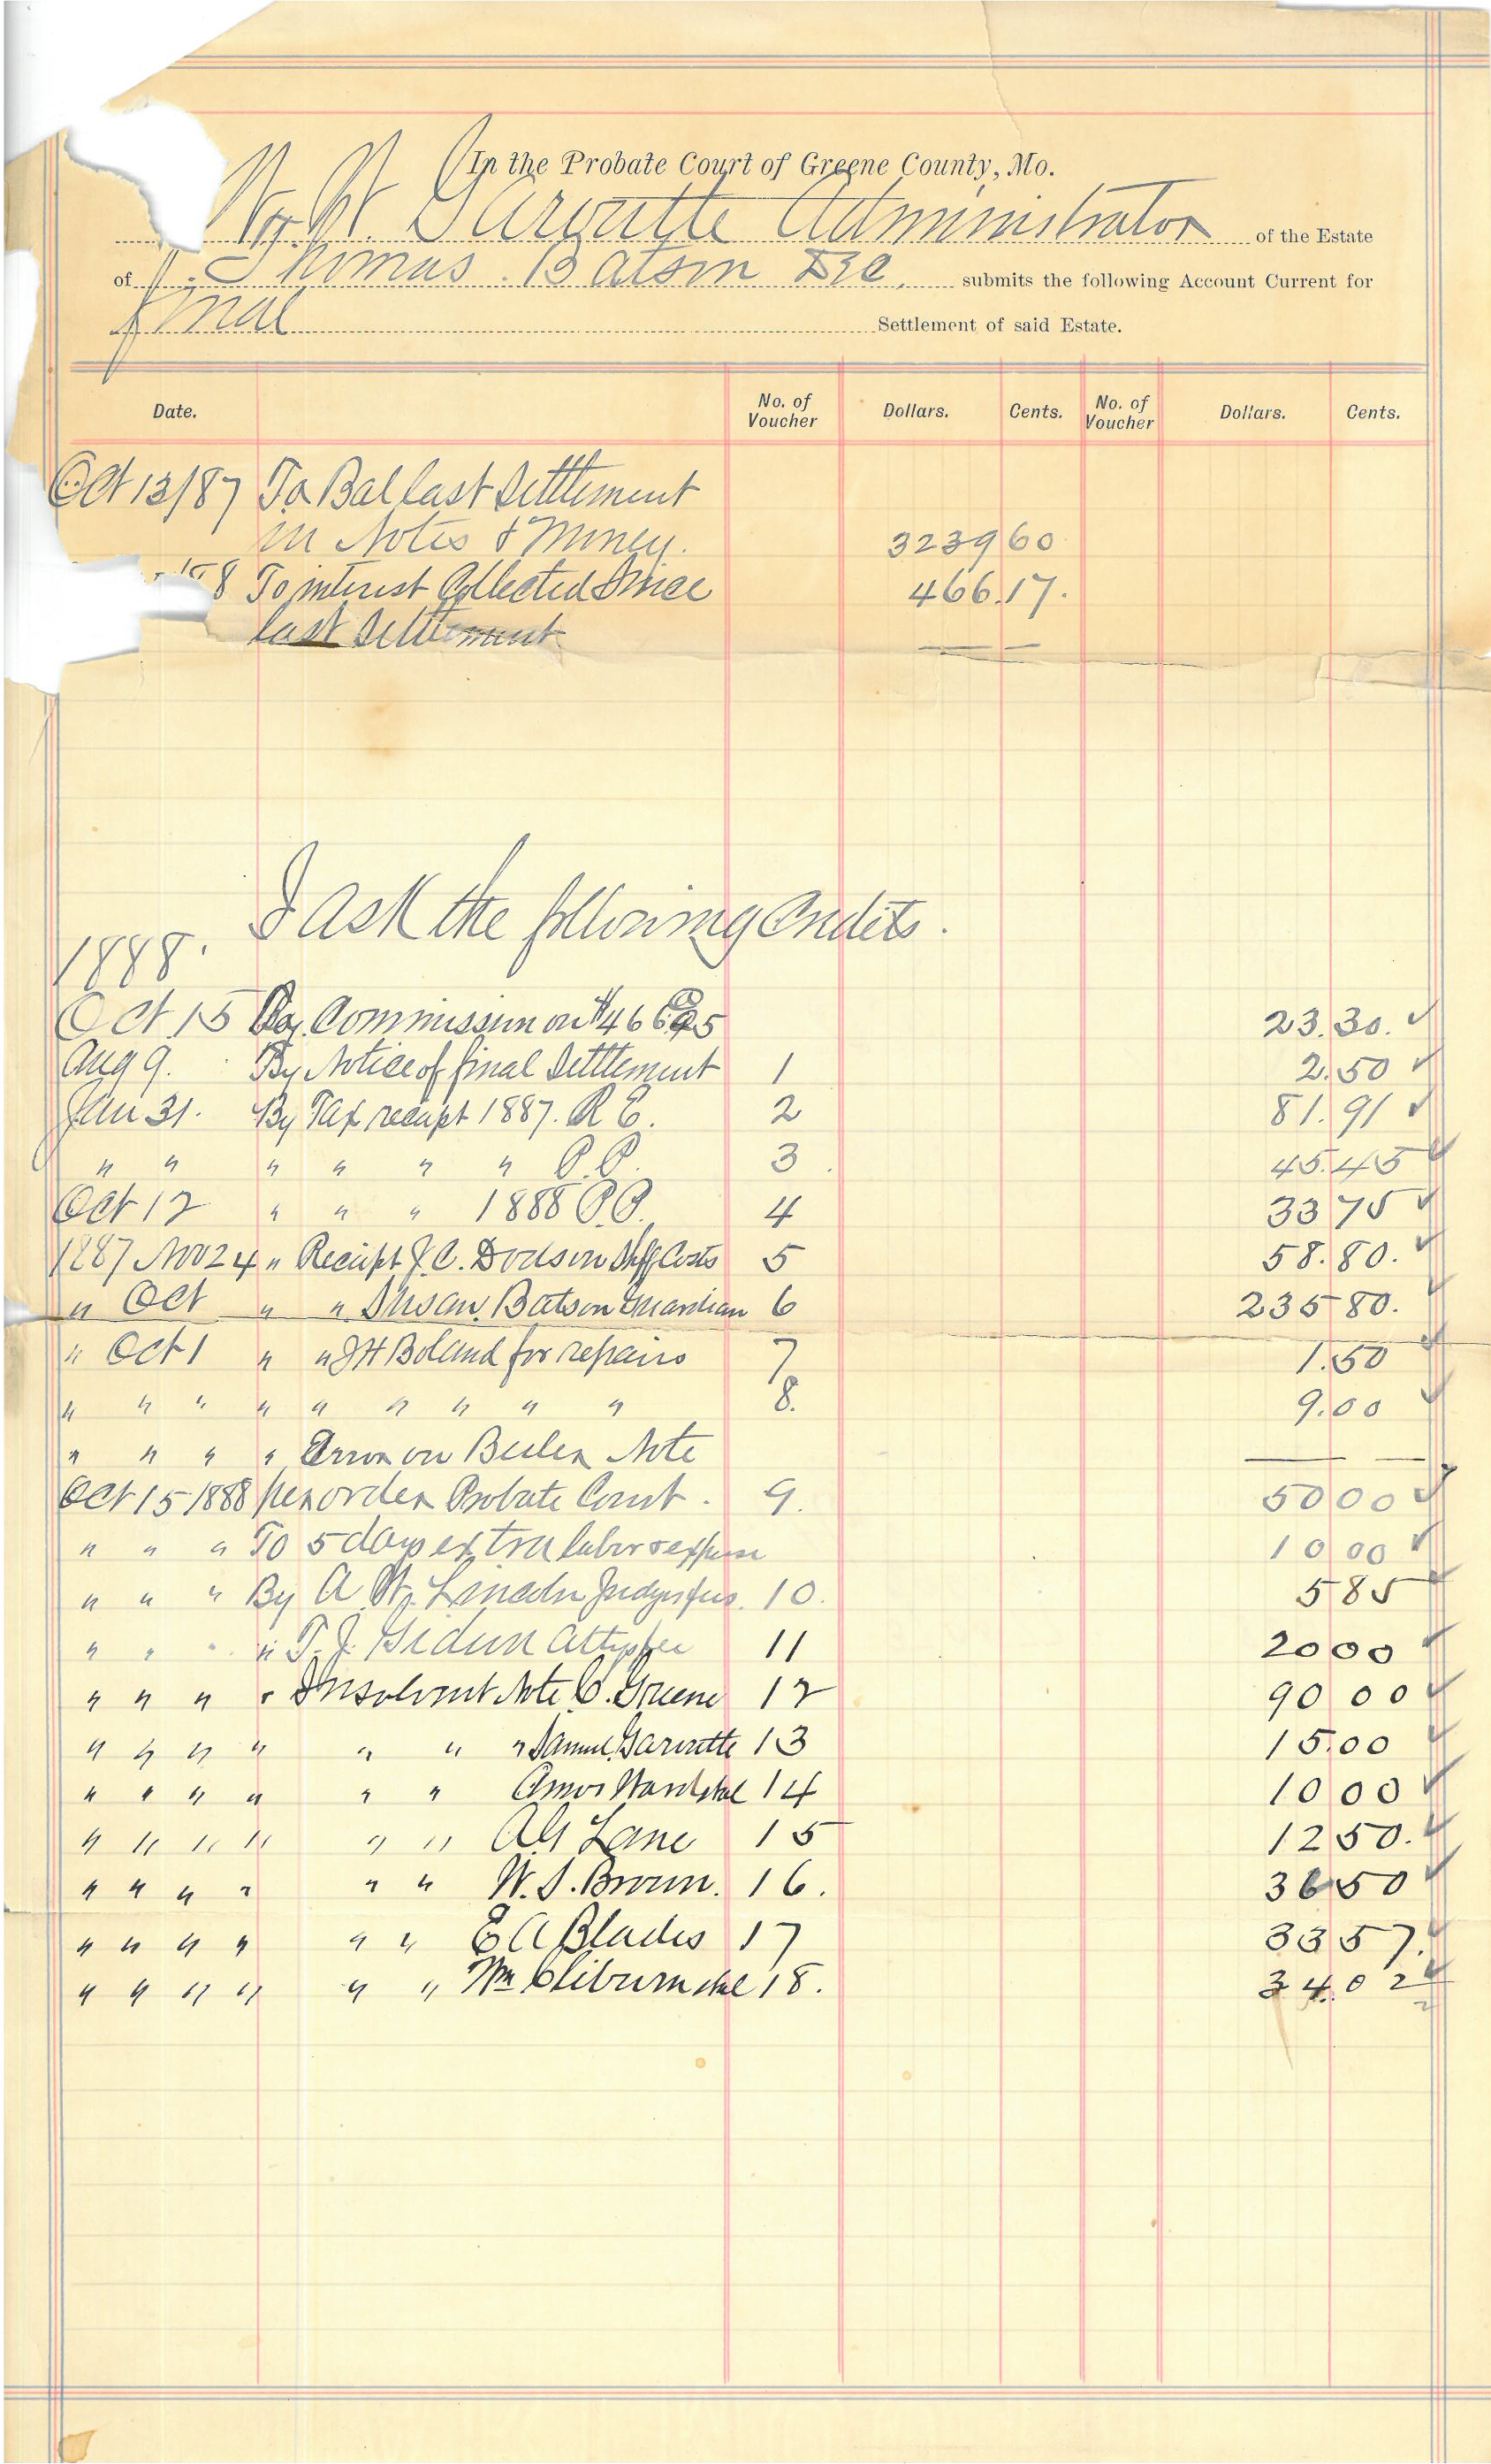 In the Probate Court of Greene County, Mo.
Garoutte Administrator of the Estate
of Thomas Batson Dec. submits the following Account Current for
final Settlement of said Estate.
Date. No. of Voucher Dollars. Cents. No. of Voucher Dollars. Cents.
Oct 13/87 To Bal last Settlement
in Notes & Money. 3239 60
To interest Collected Since 466.17.
last Settlement — —
I ask the following Credits.
1888.
Oct 15 By Commission on $466 23.30. ✓
Aug 9. By Notice of final Settlement 1 2.50 ✓
Jan 31. By Tax receipt 1887. R E. 2 81.91 ✓
" " " " " " P.P. 3 45.45 ✓
Oct 12 " " " 1888 P.P. 4 33 75 ✓
1887 Nov 24 " Receipt J. C. Dodson Shff Costs 5 58.80. ✓
" Oct " " Susan Batson Guardian 6 235 80. ✓
" Oct 1 " " J H Boland for repairs 7 1.50 ✓
" " " " " " " " " 8. 9.00 ✓
" " " " Error on Note — —
Oct 15 1888 per order Probate Court. 9. 50 00 ✓
" " " To 5 days extra labor & expense 10 00 ✓
" " " By A. W. Lincoln Judges fees. 10. 5 85 ✓
" " " " T. J. Gideon Attys fee 11 20 00 ✓
" " " " Insolvent Note C. Greene 12 90 00 ✓
" " " " " " " Saml. Garoutte 13 15.00 ✓
" " " " " " Amos 14 10 00 ✓
" " " " " " Lane 15 12 50. ✓
" " " " " " W. S. Brown. 16. 36 50 ✓
" " " " " " E A Blades 17 33 57. ✓
" " " " " " Wm Cliburn 18. 34.02 ✓